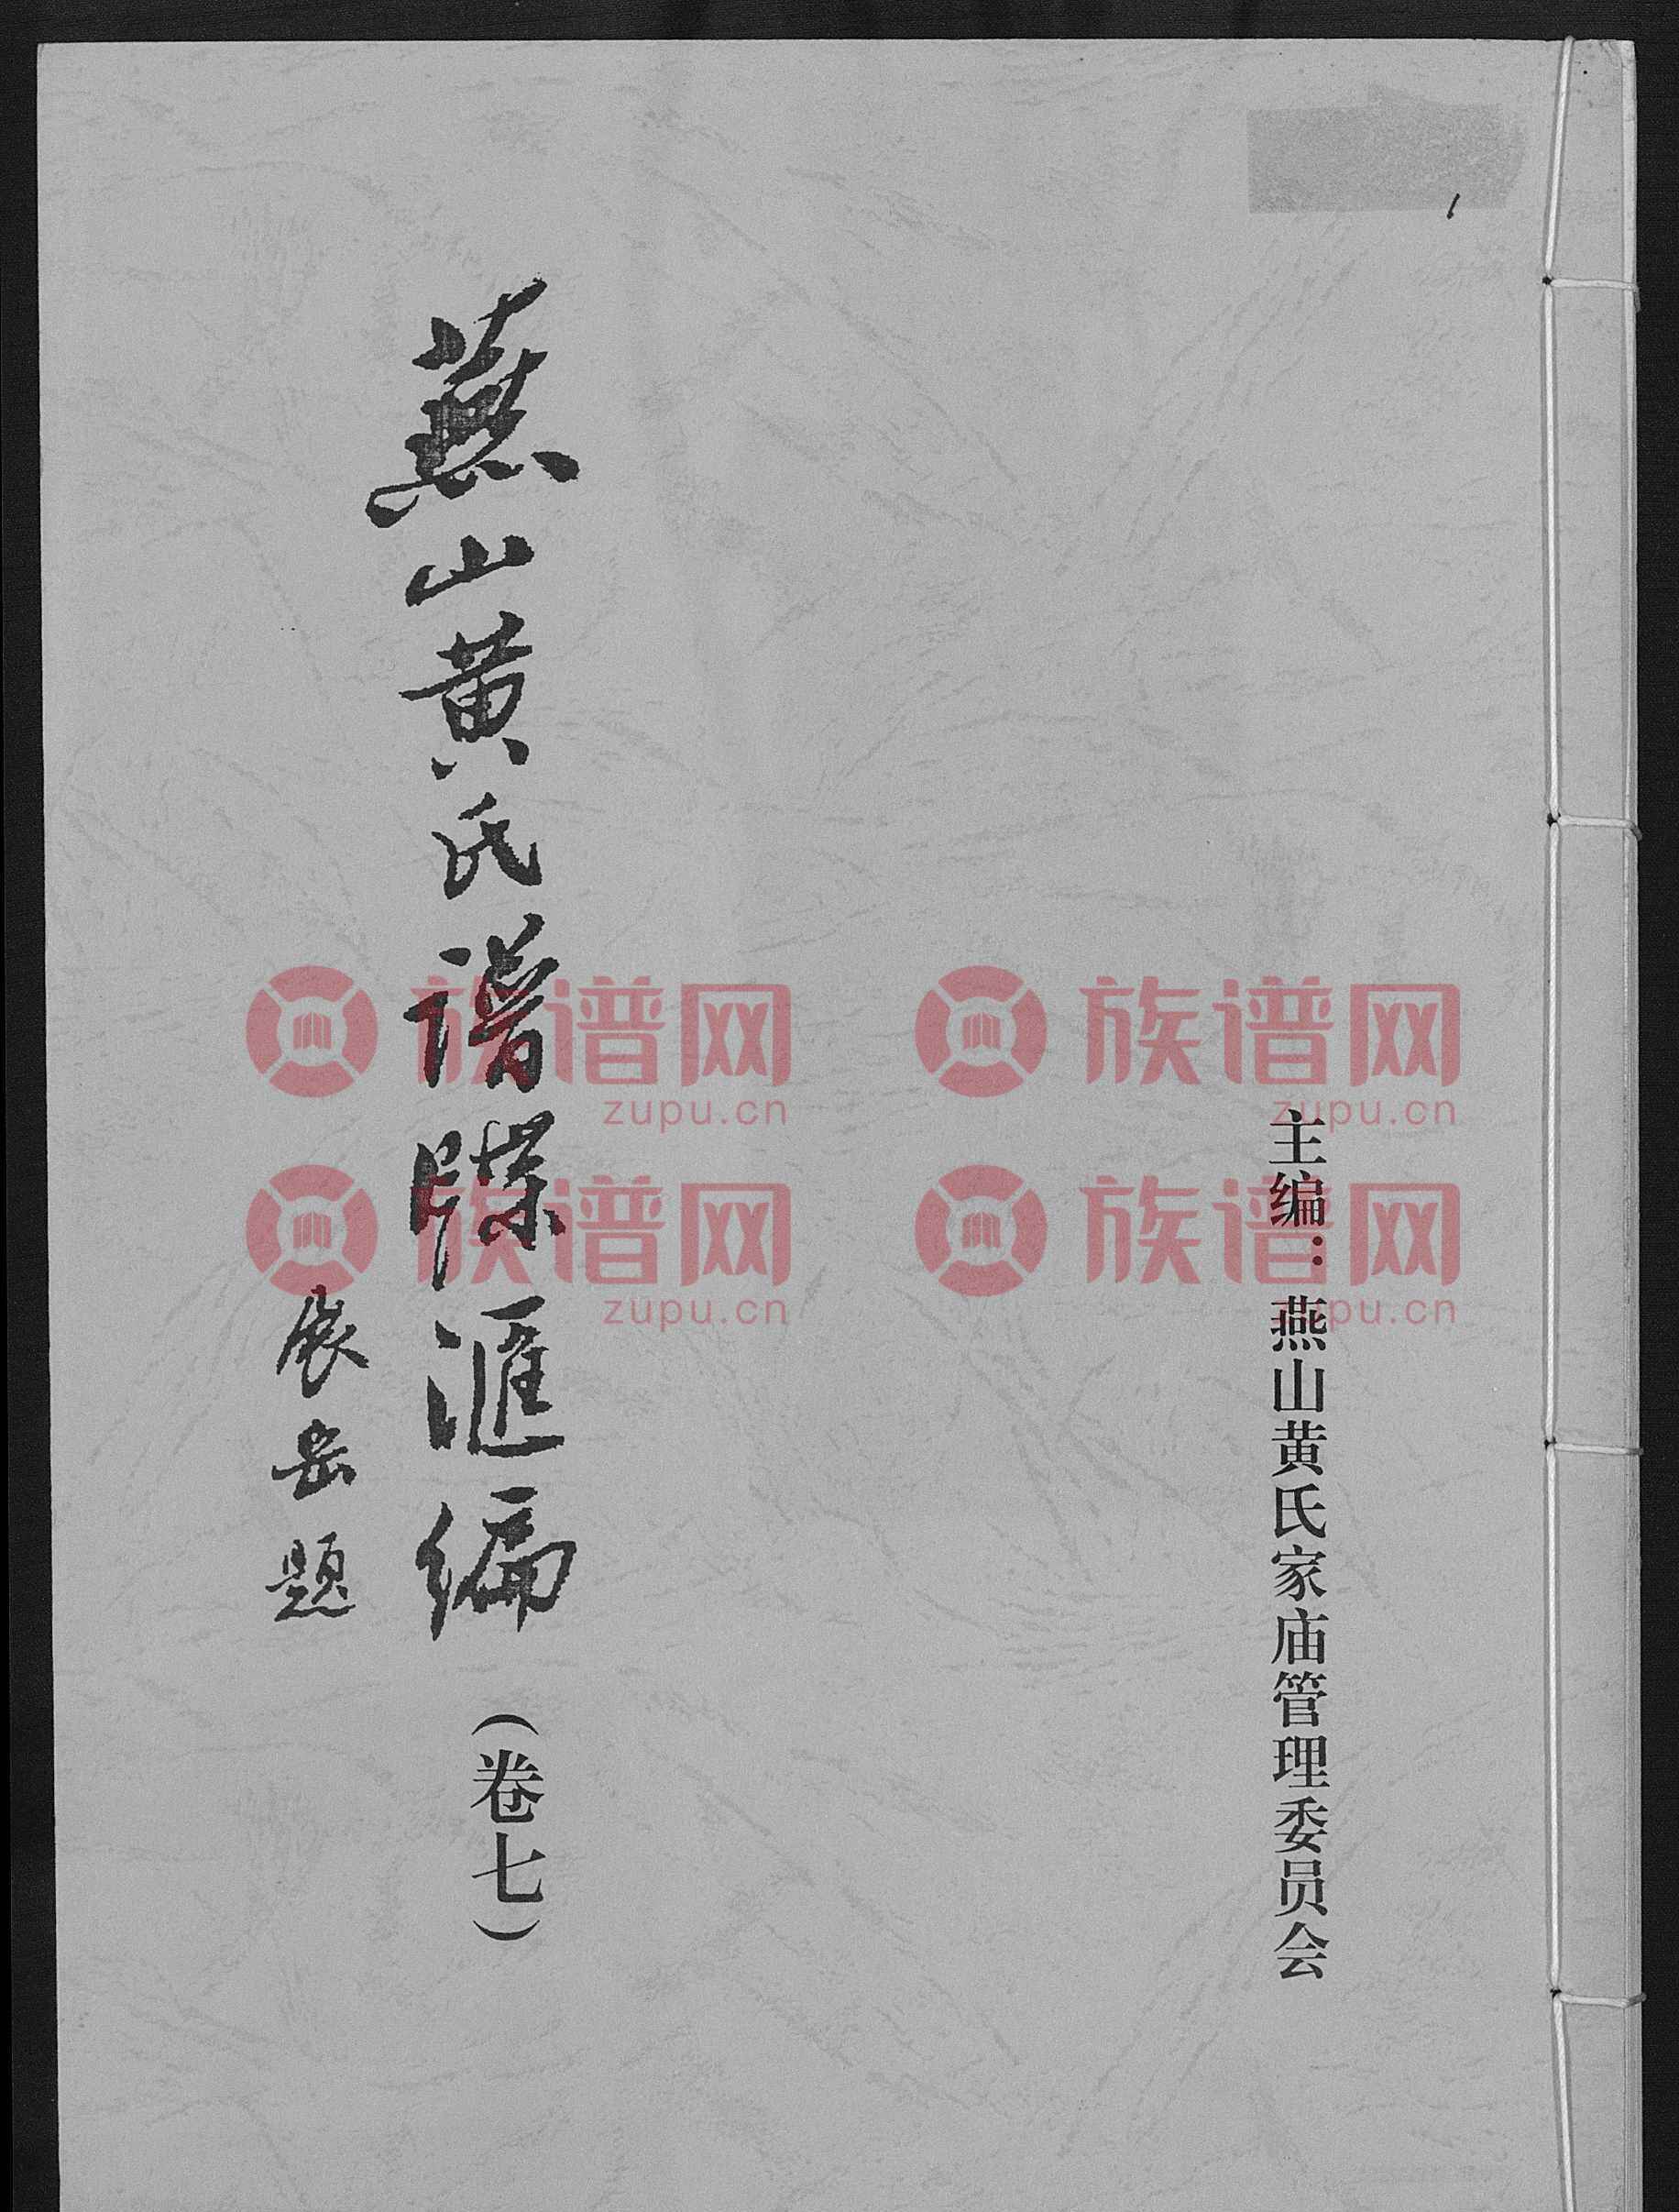 主编：燕山黄氏家庙管理委员会
燕山黄氏谱牒滙编（卷七）
展岳题
族谱网
zupu.cn
族谱网
zupu.cn
族谱网
zupu.cn
族谱网
zupu.cn
1